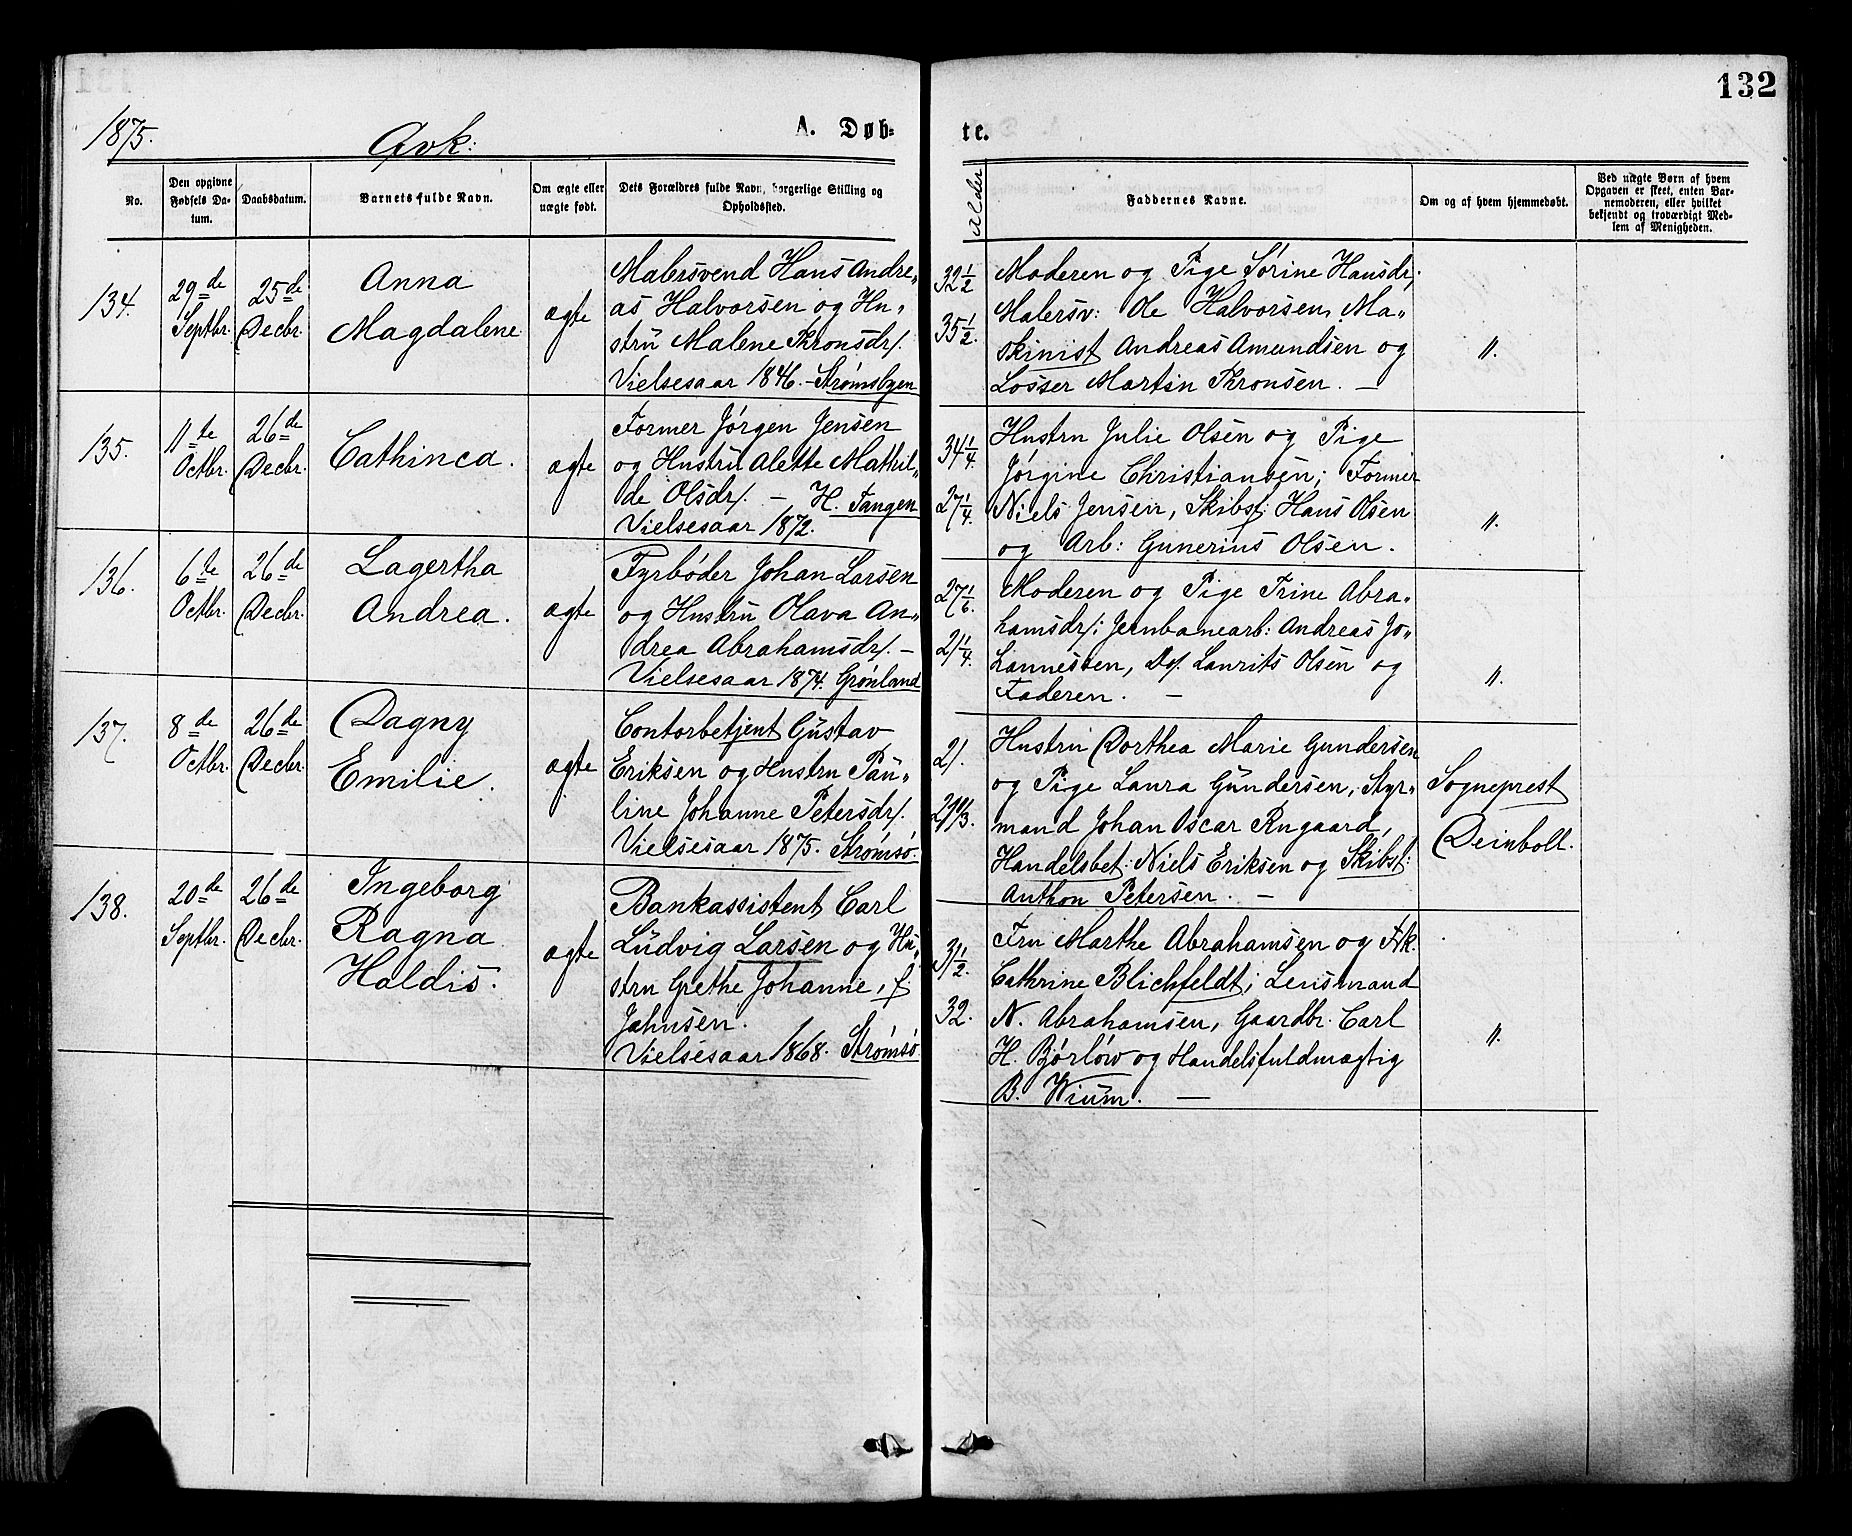 132
1875.
Qvk:
A. Døb-
te.
No.
Den opgivne Fødsels Datum.
Daabsdatum.
Barnets fulde Navn.
Om ægte eller uægte født.
Dets Forældres fulde Navn, borgerlige Stilling og Opholdssted.
Alder
Faddernes Navne.
Om og af hvem hjemmedøbt.
Ved uægte Børn af hvem Opgaven er skeet, enten Barnemoderen, eller hvilket bekjendt og troværdigt Medlem af Menigheden.
134.
29de Septbr.
25de Decbr.
Anna
Magdalene
ægte
Malersvend Hans Andre„
as Halvorsen og Hu„
stru Malene Thronsdr/.
Vielsesaar 1846. – Strømsbyen
32 1/2
35 1/2.
Moderen og Pige Sørine Hansdr;
Malersv: Ole Halvorsen, Ma„
skinist Andreas Amundsen og
Losser Martin Thronsen. –
"
135.
11te Octbr.
26de Decbr.
Cathinca.
ægte
Former Jørgen Jensen
og Hustru Alette Mathil„
de Olsdr/. – H. Tangen
Vielsesaar 1872.
34 1/4.
27 1/4.
Hustru Julie Olsen og Pige
Jørgine Christiansen; Former
Niels Jensen, Skibst: Hans Olsen
og Arb: Gunerius Olsen.
"
136.
6te Octbr.
26de Decbr.
Lagertha
Andrea.
ægte
Fyrbøder Johan Larsen
og Hustru Olava An„
drea Abrahamsdr/. –
Vielsesaar 1874. Grønland
27 1/6.
21 1/4.
Moderen og Pige Trine Abra„
hamsdr/; Jernbanearb: Andreas Jo„
hannesen, Do/. Laurits Olsen og
Faderen. –
"
137.
8de Octbr.
26de Decbr.
Dagny
Emilie.
ægte
Contorbetjent Gustav
Eriksen og Hustru Pau„
line Johanne Petersdr/.
Vielsesaar 1875. Strømsø.
21.
Hustru Dorthea Marie Gundersen
og Pige Laura Gundersen, Styr„
mand Johan Oscar
Handelsbet: Niels Eriksen og Skibst:
Anthon Petersen. –
Sogneprest
Deinboll.
138.
20de Septbr.
26de Decbr.
Ingeborg
Ragna
Haldis.
ægte
Bankassistent Carl
Ludvig Larsen og Hu„
stru Grethe Johanne, f.
Jahnsen.
Vielsesaar 1868. Strømsø
31 1/2.
32.
Fru Marthe Abrahamsen og Frk.
Cathrine Blichfeldt; Lensmand
N. Abrahamsen, Gaardbr. Carl
H. Bjørløw og Handelsfuldmægtig
B. Wium. –
"